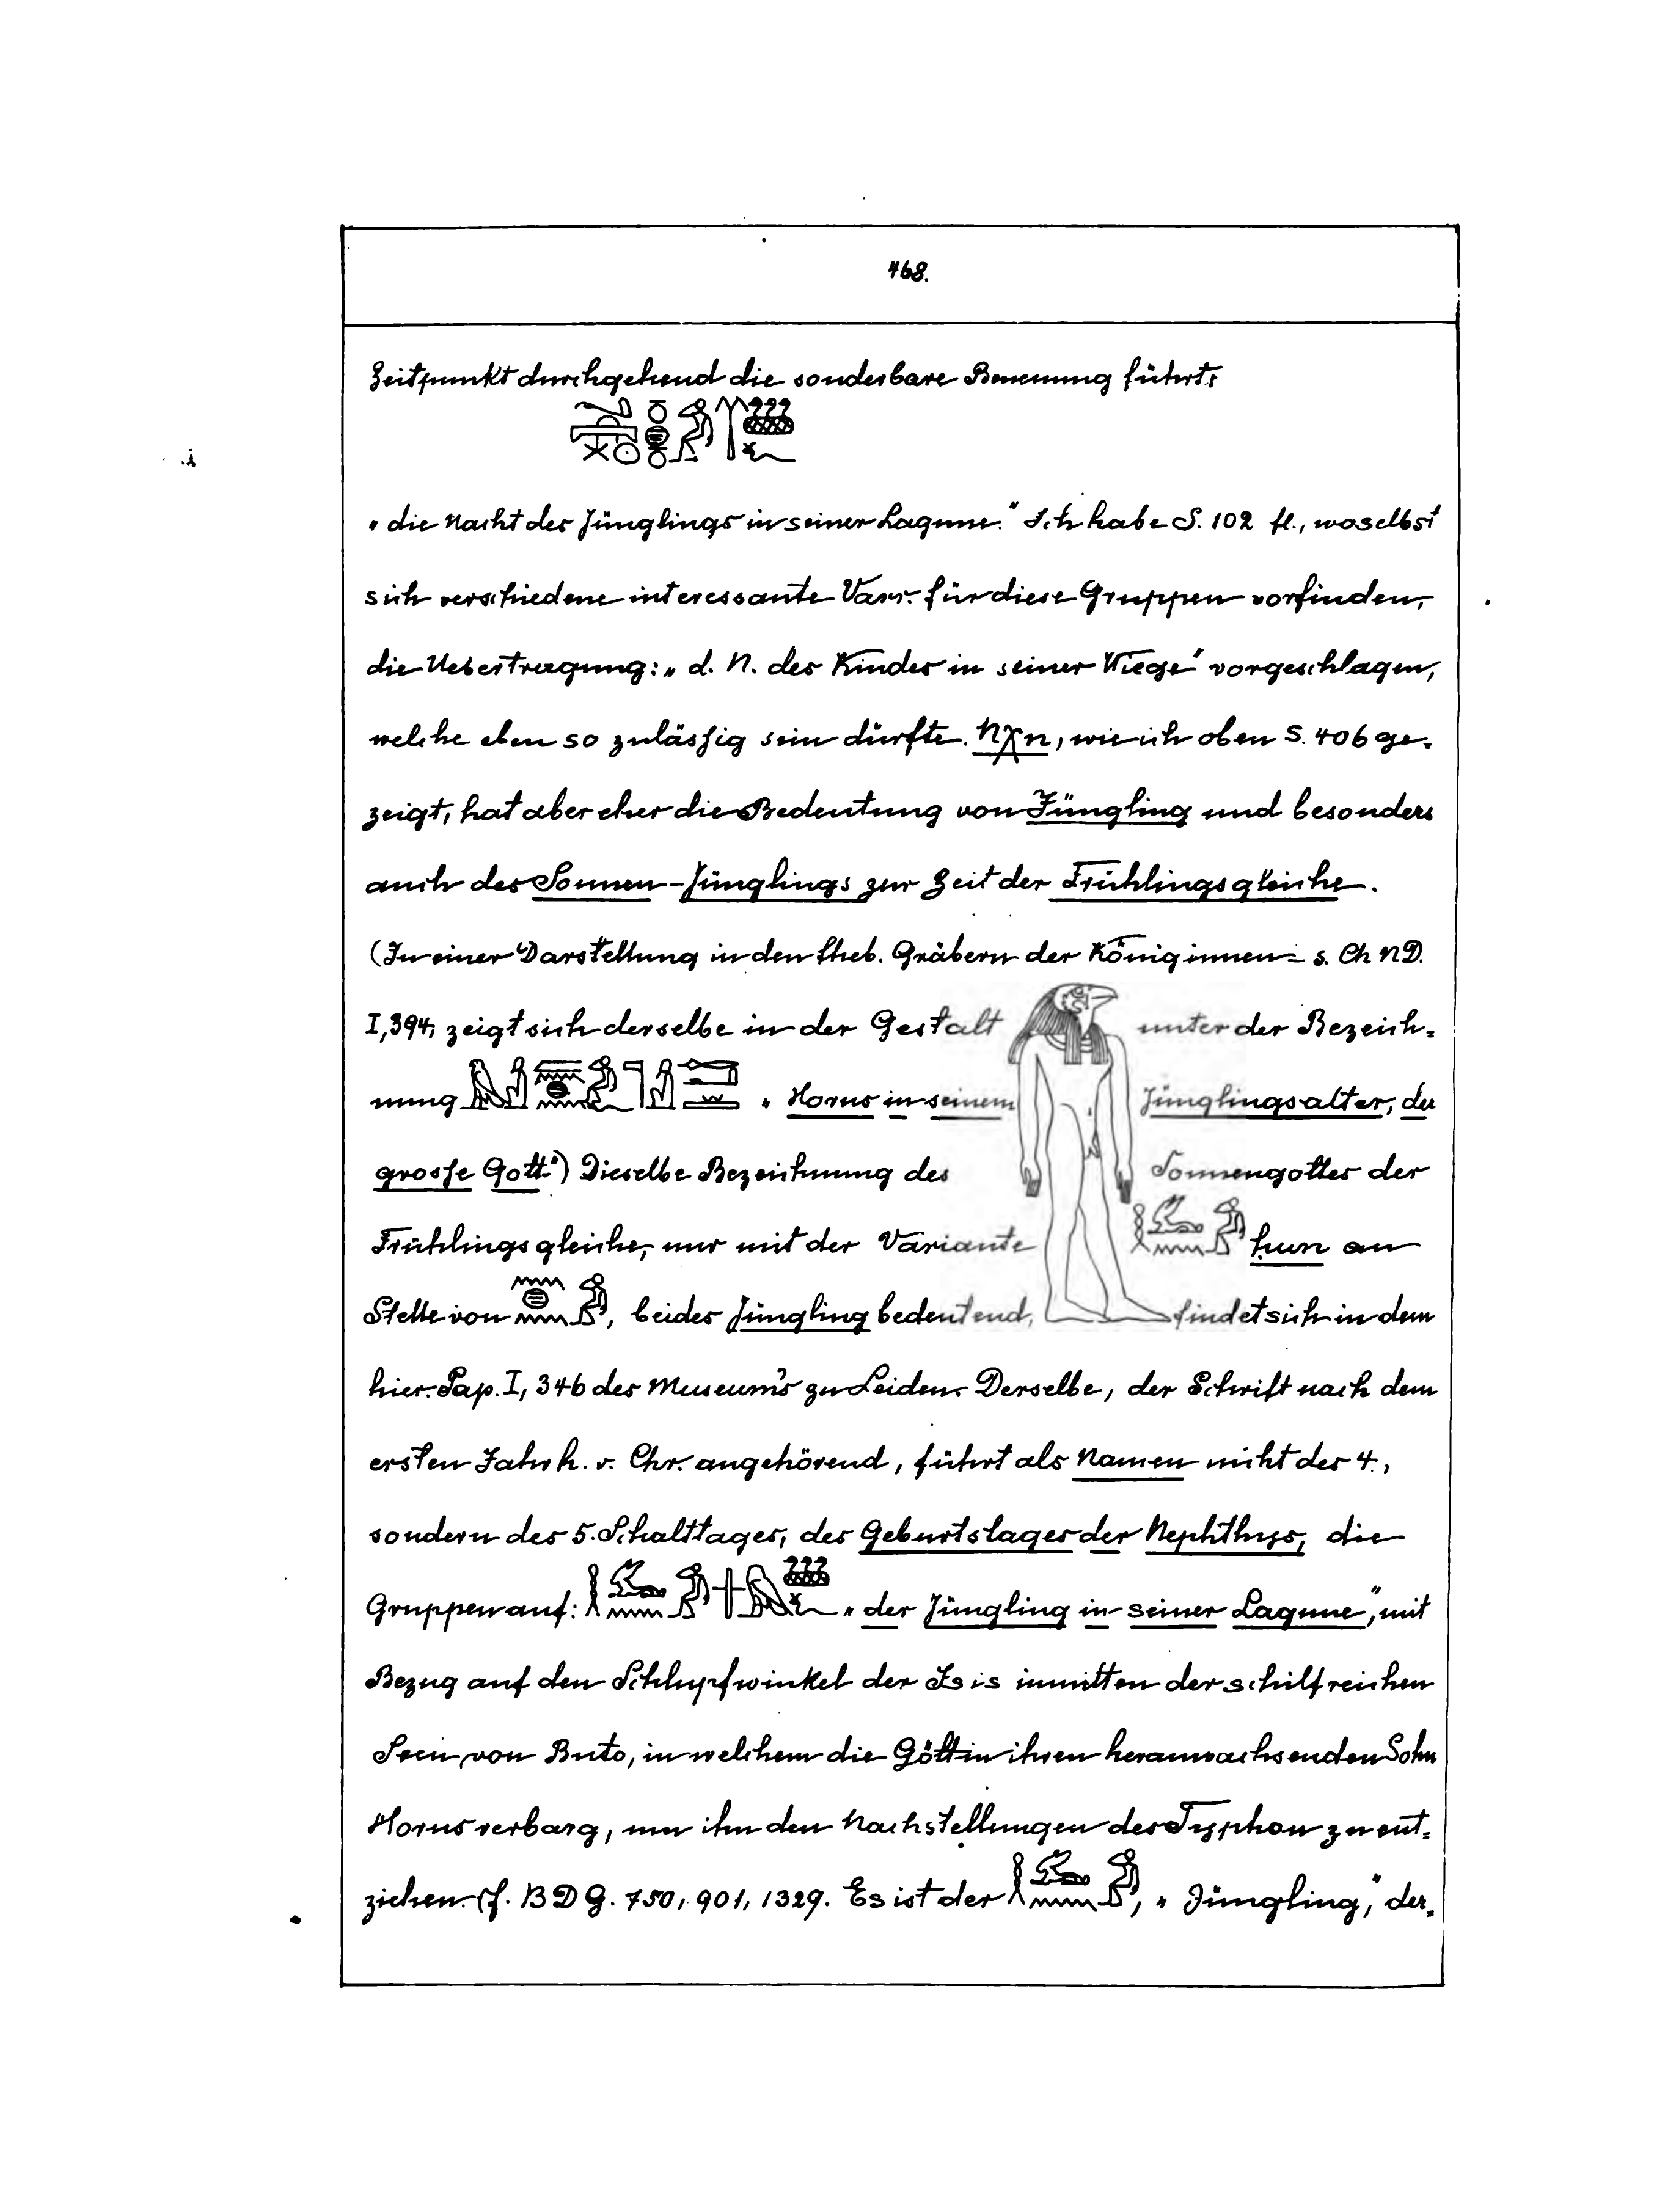 468.
Zeitpunkt durchgehend die sonderbare Benennung führt:
„die Nacht des Jünglings in seiner Lagune." Ich habe S. 102 fl., woselbst
sich verschiedene interessante Varr. für diese Gruppen vorfinden,
die Uebertragung: „d. N. des Kindes in seiner Wiege" vorgeschlagen,
welche eben so zulässig sein dürfte. nχn, wie ich oben S. 406 ge-
zeigt, hat aber eher die Bedeutung von Jüngling und besonders
auch des Sonnen-Jünglings zur Zeit der Frühlingsgleiche.
(In einer Darstellung in den theb. Gräbern der Königinnen - s. Ch ND.
I, 394, zeigt sich derselbe in der Gestalt unter der Bezeich-
nung „Horus in seinem Jünglingsalter, der
grosse Gott.") Dieselbe Bezeichnung des Sonnengottes der
Frühlingsgleiche, nur mit der Variante ḥun an
Stelle von , beides Jüngling bedeutend, findet sich in dem
hier. Pap. I, 346 des Museum's zu Leiden. Derselbe, der Schrift nach dem
ersten Jahrh. v. Chr. angehörend, führt als Namen nicht des 4.,
sondern des 5. Schalttages, des Geburtstages der Nephthys, die
Gruppen auf: „der Jüngling in seiner Lagune", mit
Bezug auf den Schlupfwinkel der Isis inmitten der schilfreichen
Seen von Buto, in welchem die Göttin ihren heranwachsenden Sohn
Horus verbarg, um ihn den Nachstellungen des Typhon zu ent-
ziehen. Cf. BDG. 750, 901, 1329. Es ist der , „Jüngling," der,